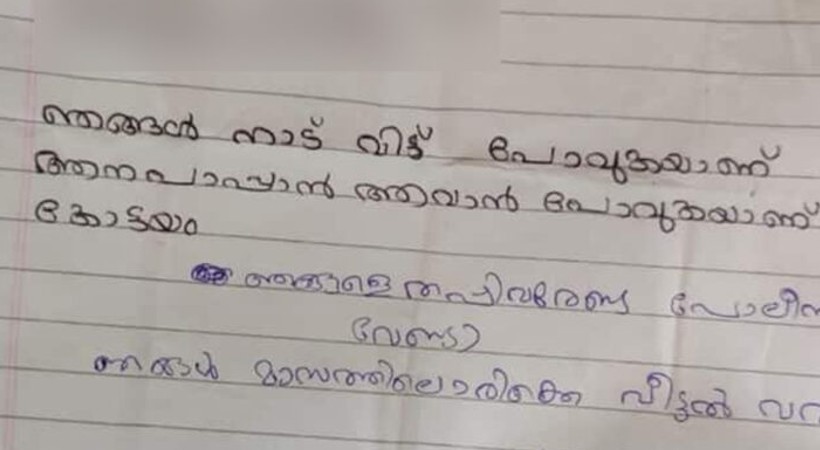 ഞങ്ങൾ നാട് വിട്ട് പോവുകയാണ്
ആനപാപ്പാൻ ആവാൻ പോവുകയാണ്
കോട്ടയം
ഞങ്ങളെ തപ്പിവരേണ്ട പോലീസ
വേണ്ടാ
ഞങ്ങൾ മാസത്തിലൊരിക്കെ വീട്ടൽ വറ